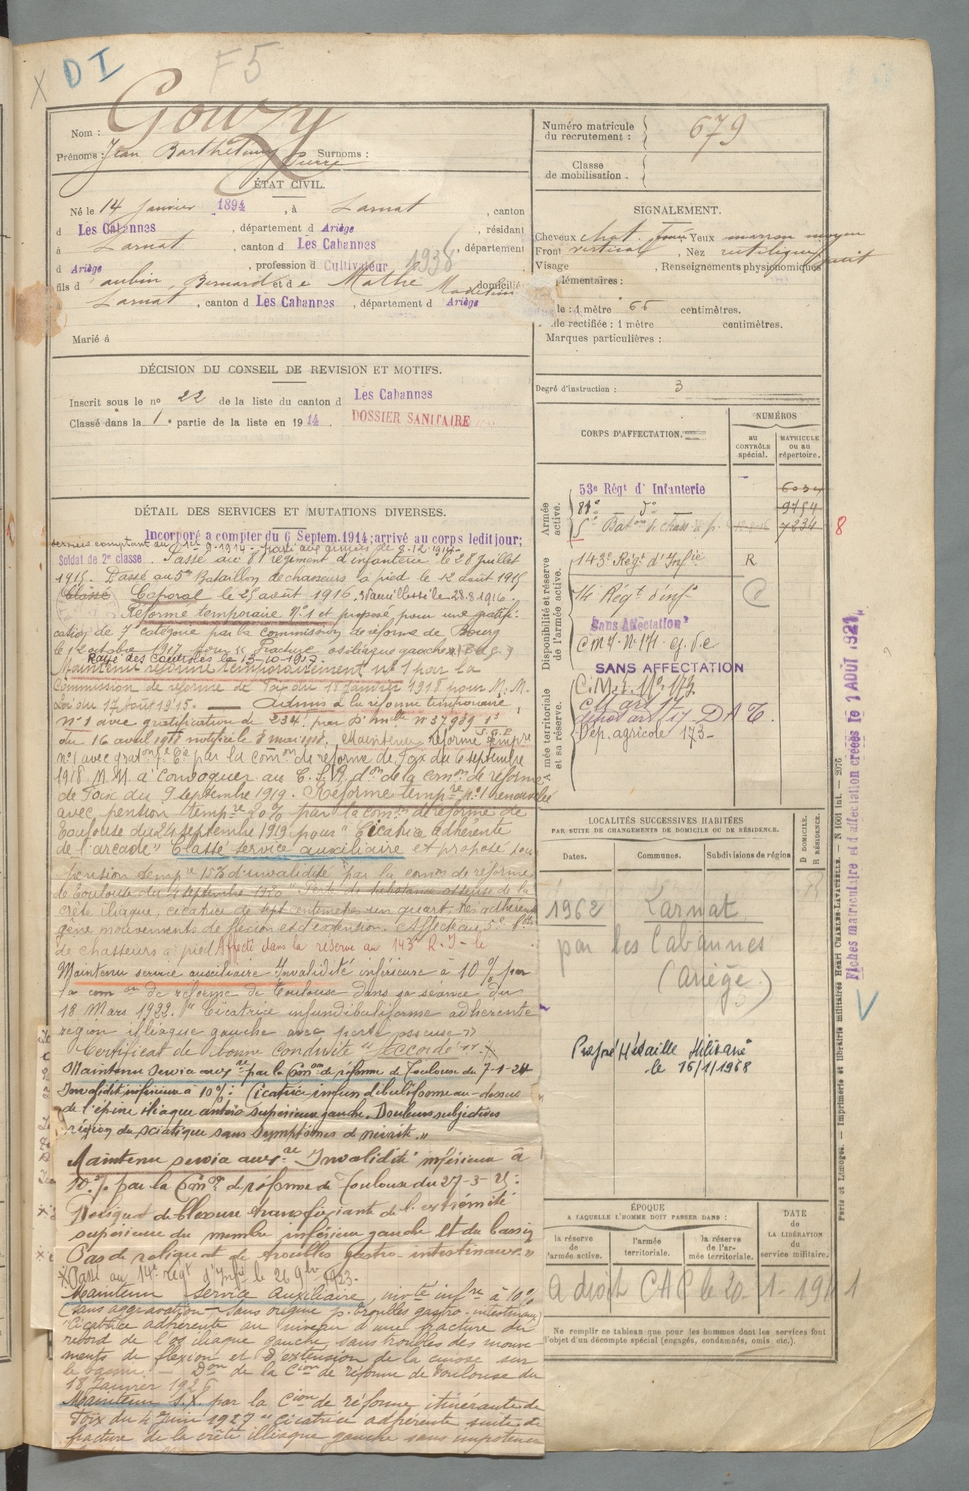 DI
F5
Nom : Gouzy
Prénoms : Jean Barthélemy Pierre Surnoms :
ÉTAT CIVIL.
Né le 14 Janvier 1894, à Larnat, canton
d Les Cabannes, département d Ariège, résidant
à Larnat, canton d Les Cabannes, département
d Ariège, profession d Cultivateur 1938
fils d' aubin, Bernard et de Mathe domicilié
Larnat, canton d Les Cabannes, département d Ariège
Marié à
DÉCISION DU CONSEIL DE REVISION ET MOTIFS.
Inscrit sous le nº 22 de la liste du canton d Les Cabannes
Classé dans la 1e partie de la liste en 1914
DOSSIER SANITAIRE
DÉTAIL DES SERVICES ET MUTATIONS DIVERSES.
Incorporé à compter du 6 Septem. 1914; arrivé au corps ledit jour;
Soldat de 2e classe. Passé au 81 régiment d'infanterie le 28 juillet
1915. Passé au 5me Bataillon de chasseurs à pied le 12 août 1915
Classé Caporal le 25 août 1916.
Réformé temporaire Nº1 et proposé pour une gratifi-
cation de 7e catégorie par la commission de réforme de Bourg
le 12 octobre 1917 pour "Fracture os iliaque gauche"
Rayé des Contrôles le 13-10-1917.
Maintenu réformé temporairement nº1 par la
Commission de réforme de Foix du 15 Janvier 1918 pour N. M.
Loi du 17 Août 1915. — Admis à la réforme temporaire
nº1 avec gratification de 234f par Don mlle nº 37989
du 16 avril 1918 notifié le 8 mai 1918. Maintenu Réformé tempre
nº1 avec graton 7e Cie par la comon de réforme de Foix du 6 septembre
1918. N. M. à convoquer au C.S.R. don de la comon de réforme
de Foix du 9 septembre 1919. Réforme tempre nº1 renouvelée
avec pension tempre 20% par la comon de réforme de
Toulouse du 24 septembre 1919 pour "Cicatrice adhérente
de l'arcade" Classé service auxiliaire et proposé pour
pension tempre 15% d'invalidité par la comon de réforme
de Toulouse du 4 septembre 1920 "Perte de substance osseuse de la
crête iliaque, cicatrice de sept centimètres un quart, très adhérente
gêne mouvements de flexion et d'extension. Affecté au 5e Bton
de chasseurs à pied. Affecté dans la réserve au 143e R.I. le
Maintenu service auxiliaire "Invalidité inférieure à 10% par
la comon de réforme de Toulouse dans sa séance du
18 Mars 1922. "Cicatrice infundibuliforme adhérente
région illiaque gauche avec perte osseuse"
Certificat de bonne conduite "accordé".
Maintenu service auxre par la Comon de réforme de Toulouse du 7-1-24
Invalidité inférieure à 10%: Cicatrice infundibuliforme au-dessus
de l'épine iliaque antéro supérieure gauche. Douleurs subjectives
région du sciatique sans symptômes de névrite."
Maintenu service auxre Invalidité inférieure à
10% par la Comon de réforme de Toulouse du 27-3-25:
Reliquat de blessure transfixiante de l'extrémité
supérieure du membre inférieur gauche et du bassin
Pas de reliquat de troubles gastro-intestinaux."
Passé au 14e régt d'Infie le 26 9bre 1923.
Maintenu Service Auxiliaire, invté infre à 10%
sans aggravation - sans origine p. troubles gastro-intestinaux
"Cicatrice adhérente au niveau d'une fracture du
rebord de l'os iliaque gauche, sans troubles des mouve-
ments de flexion et d'extension de la cuisse sur
le bassin. — Don de la Cion de réforme de Toulouse du
18 Janvier 1926
Maintenu S.X. par la Cion de réforme itinérante de
Foix du 4 Juin 1927 "cicatrice adhérente suite de
fracture de la crête illiaque gauche sans impotence
Numéro matricule du recrutement : 679
Classe de mobilisation.
SIGNALEMENT.
Cheveux chat. Yeux marron moyen
Front vertical, Nez rectiligne
Visage , Renseignements physionomiques
plémentaires :
le : 1 mètre 65 centimètres.
rectifiée : 1 mètre centimètres.
Marques particulières :
Degré d'instruction : 3
CORPS D'AFFECTATION.
NUMÉROS
AU CONTRÔLE spécial.
MATRICULE ou au répertoire.
Armée active.
53e Régt d'Infanterie
81e do 9154
5e Baton de chass à p. 7234 8
Disponibilité et réserve de l'armée active.
143e Régt d'Infie R
14 Régt d'infie
Sans Affectation
SANS AFFECTATION
Armée territoriale et sa réserve.
C.M. 173
Dép. agricole 173
LOCALITÉS SUCCESSIVES HABITÉES
PAR SUITE DE CHANGEMENTS DE DOMICILE OU DE RÉSIDENCE.
Dates. Communes. Subdivisions de région
D DOMICILE.
R RÉSIDENCE.
1962 Larnat
par les Cabannes
(Ariège)
Proposé Médaille Militaire
le 16/1/1968
ÉPOQUE
A LAQUELLE L'HOMME DOIT PASSER DANS :
la réserve de l'armée active.
l'armée territoriale.
la réserve de l'armée territoriale.
DATE de LA LIBÉRATION du service militaire.
a droit CAC le 20-1-1941
Ne remplir ce tableau que pour les hommes dont les services font
l'objet d'un décompte spécial (engagés, condamnés, omis, etc.).
Fiches matriculaire et d'affectation créées le 1 AOUT 1921
Paris et Limoges. — Imprimerie et librairie militaires Henri CHARLES-LAVAUZELLE.